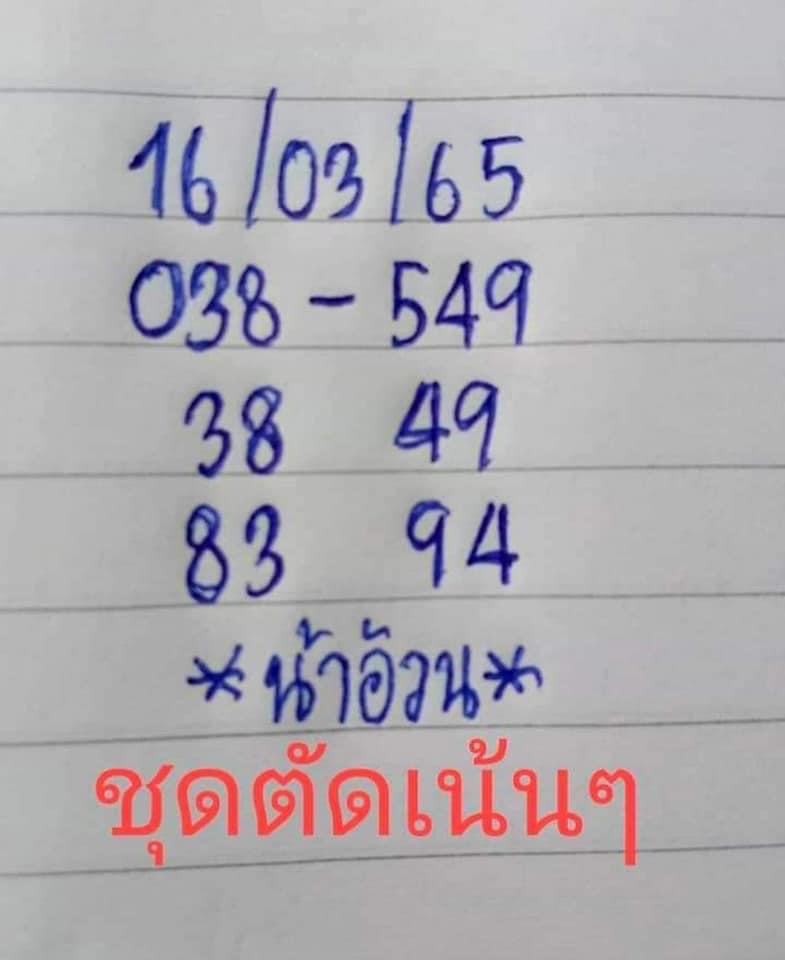 16/03/65
038 - 549
38 49
83 94
*น้าอ้วน*
ชุดตัดเน้นๆ